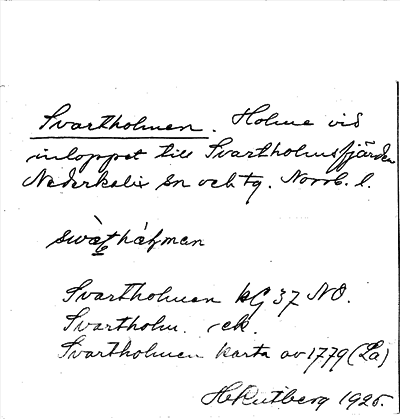 Svartholmen. Holme vid
inloppet till Svartholmsfjärden
Nederkalix sn och tg. Norrb. l.
Svartholmen kG 37 NO.
Svartholm. ek.
Svartholmen karta av 1779 (La)
H Rutberg 1926.